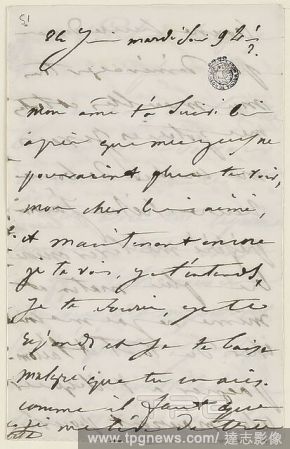 mardi soir 9 h
?
mon âme t'a suivi
après que mes yeux ne
pouvaient plus te voir,
mon cher bien aimé,
et maintenant encore
je te vois, je t'entends,
je te souris, je te
réponds et je te baise
malgré que tu
comme il faut que
me
www.tpgnews.com / 達志影像